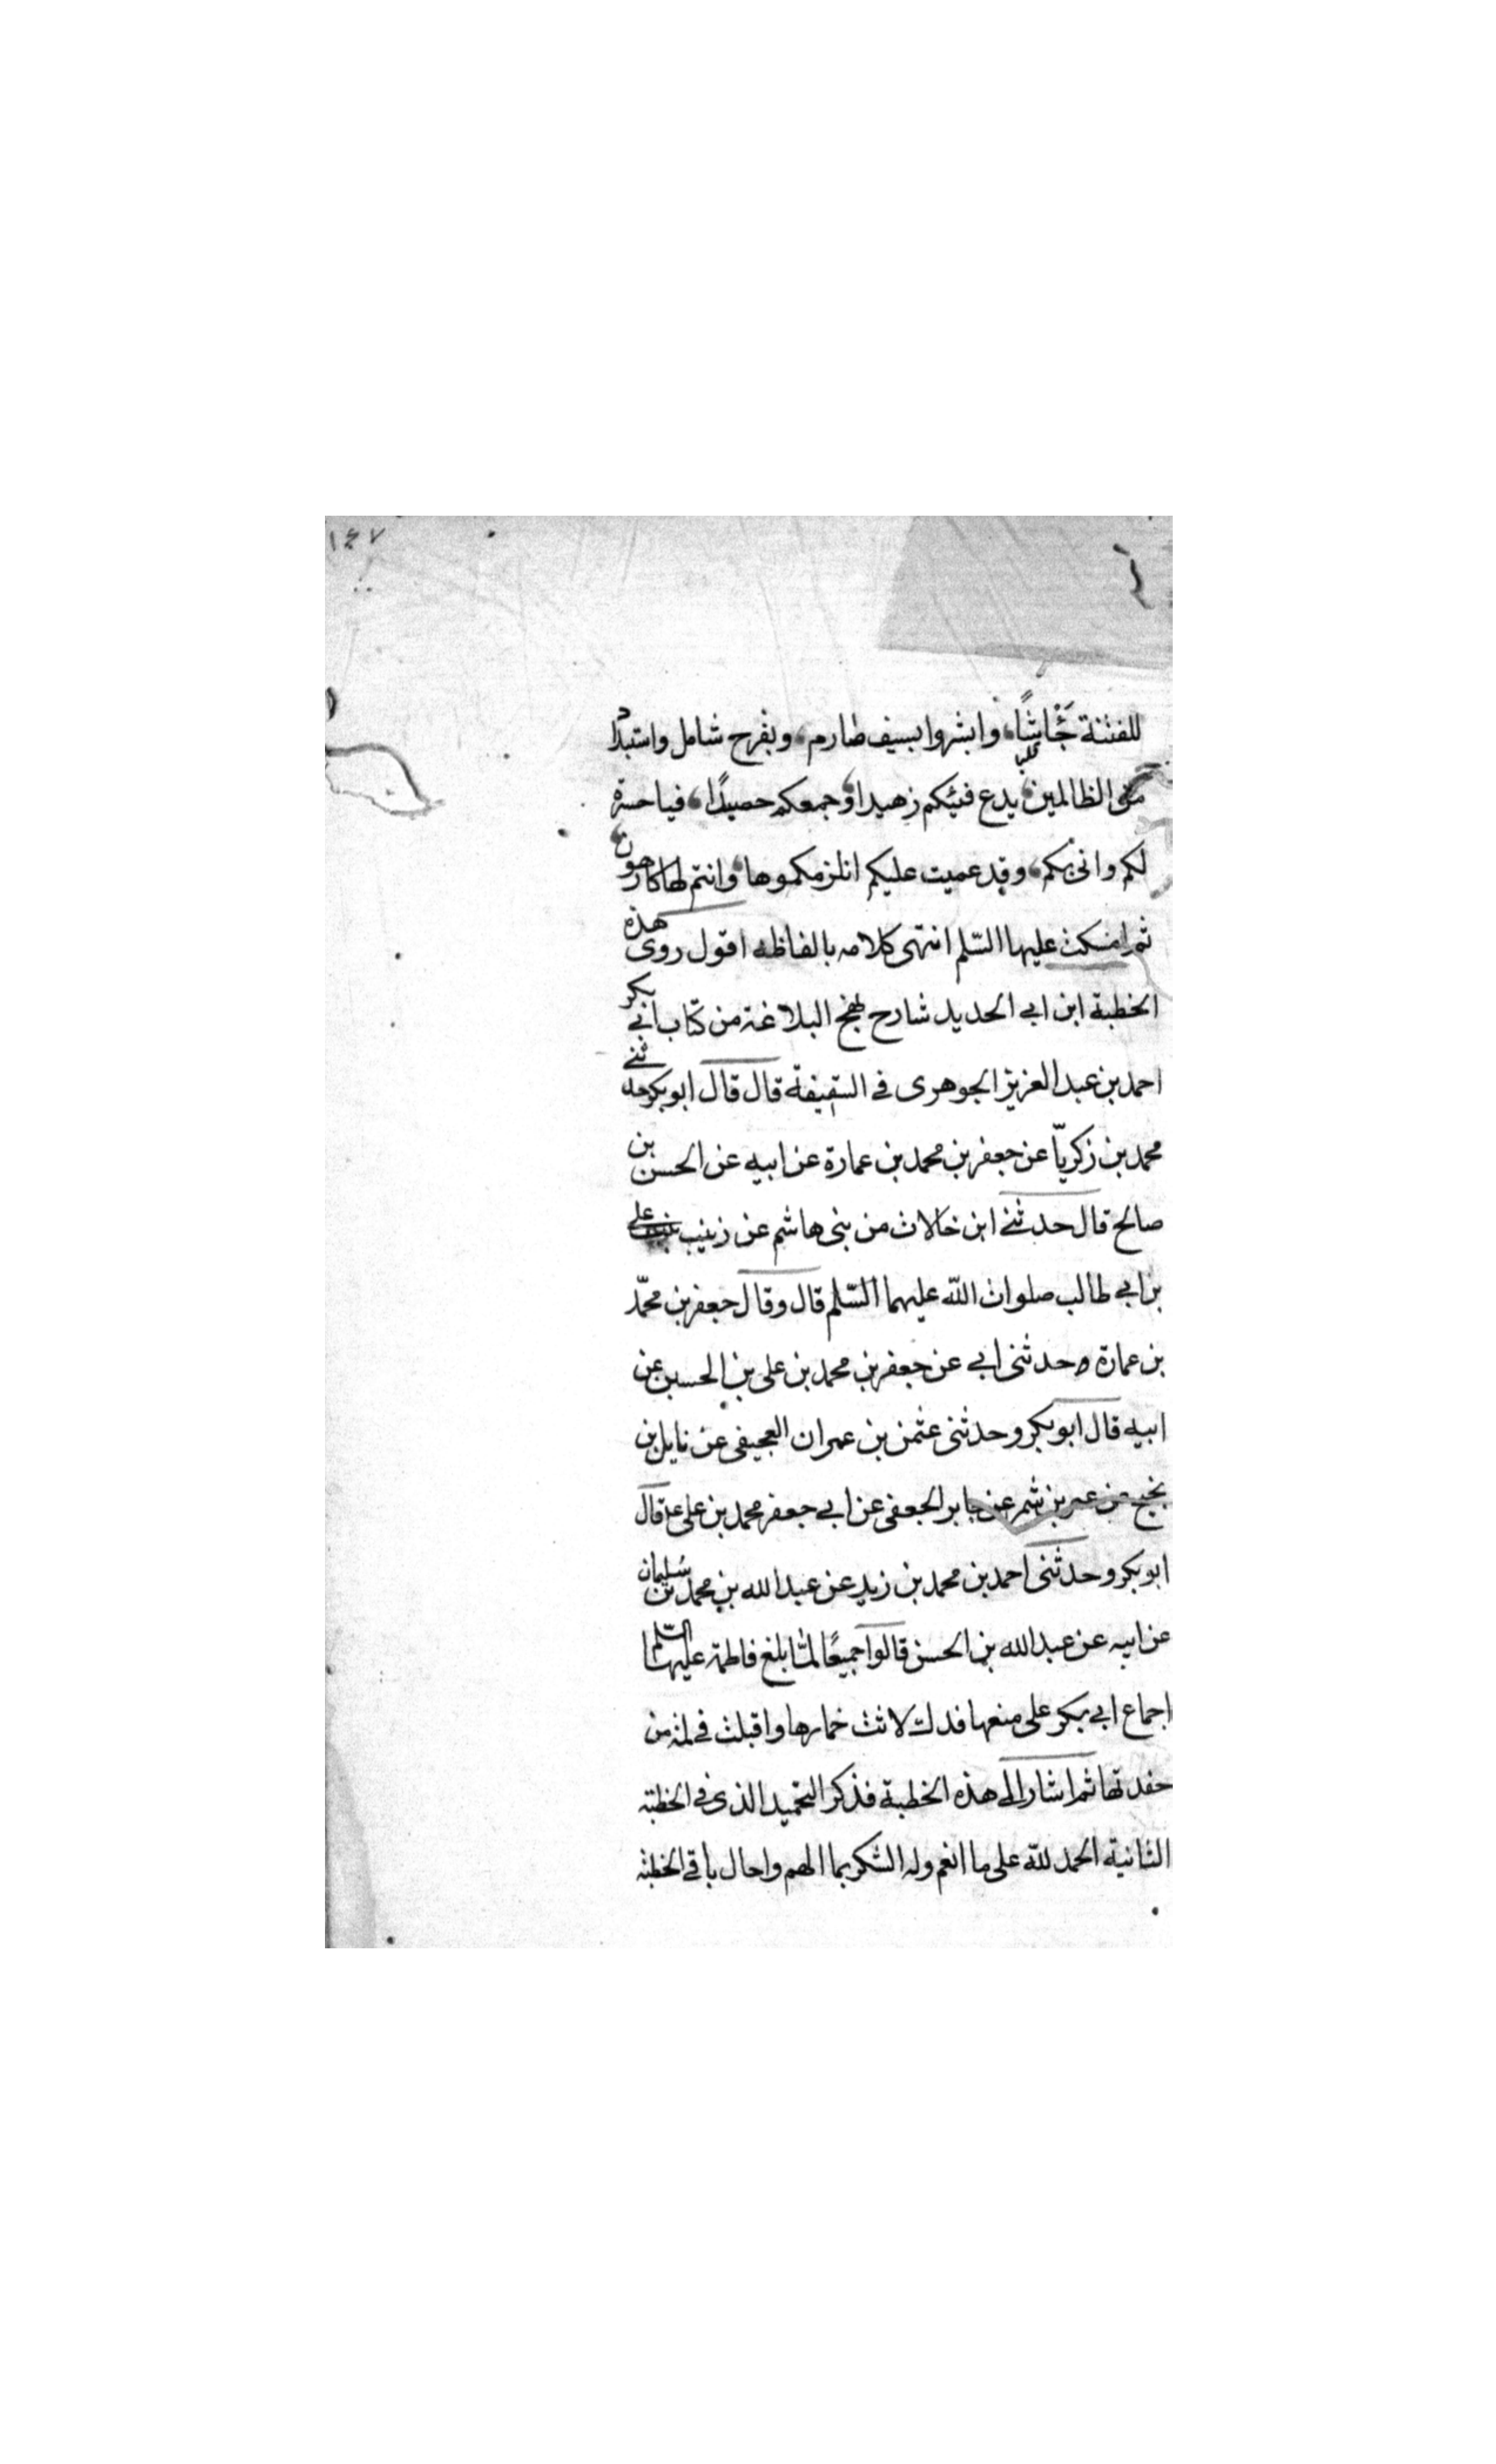 ١٤٧
للفتنة جَأشًا، وابشروا بسيف صارم، وبقرح شامل واستبداد
من الظالمين، يدع فيئكم زهيدا، وجمعكم حصيدًا، فياحسرة
لكم وانى بكم، وقد عميت عليكم انلزمكموها، وانتم لها كارهون
ثم امسكت عليها السّلم انتهى كلامه بالفاظه اقول روى هذه
الخطبة ابن ابي الحديد شارح نهج البلاغة من كتاب ابي بكر
احمد بن عبد العزيز الجوهرى في السقيفة قال قال ابو بكر حدثني
محمد بن زكريّا عن جعفر بن محمد بن عمارة عن ابيه عن الحسن بن
صالح قال حدثني ابن خالات من بنى هاشم عن زينب بنت على
بن ابي طالب صلوات الله عليهما السّلم قال وقال جعفر بن محمّد
بن عمارة وحدثنى ابي عن جعفر بن محمد بن على بن الحسين عن
ابيه قال ابو بكر وحدثنى عثمن بن عمران العجيفى عن نايل بن
نجيح عن عمر بن شمر عن جابر الجعفى عن ابي جعفر محمد بن على ع قال
ابو بكر وحدثنى احمد بن محمد بن زيد عن عبد الله بن محمد بن سُليمان
عن ابيه عن عبد الله بن الحسن قالوا جميعًا لمّا بلغ فاطمة عليها السّلم
اجماع ابي بكر على منعها فدك لاثت خمارها واقبلت في لمة من
حفدتها ثم اشار الى هذه الخطبة فذكر التحميد الذى في الخطبة
الثانية الحمد للّه على ما انعم وله الشكر بما الهم واحال باقي الخطبة